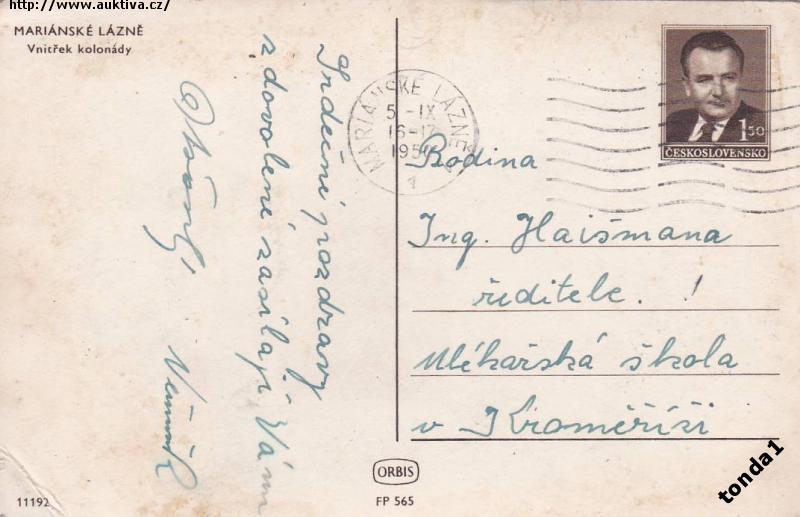 http://www.auktiva.cz/
MARIÁNSKÉ LÁZNĚ
Vnitřek kolonády
Srdečné pozdravy
z dovolené zasílají Vám
MARIÁNSKÉ LÁZNĚ
5 -IX
16-17
1
1 50
ČESKOSLOVENSKO
Rodina
Ing. Haišmana
ředitele. !
Mlékařská škola
v Kroměříži
ORBIS
11192
FP 565
tonda1